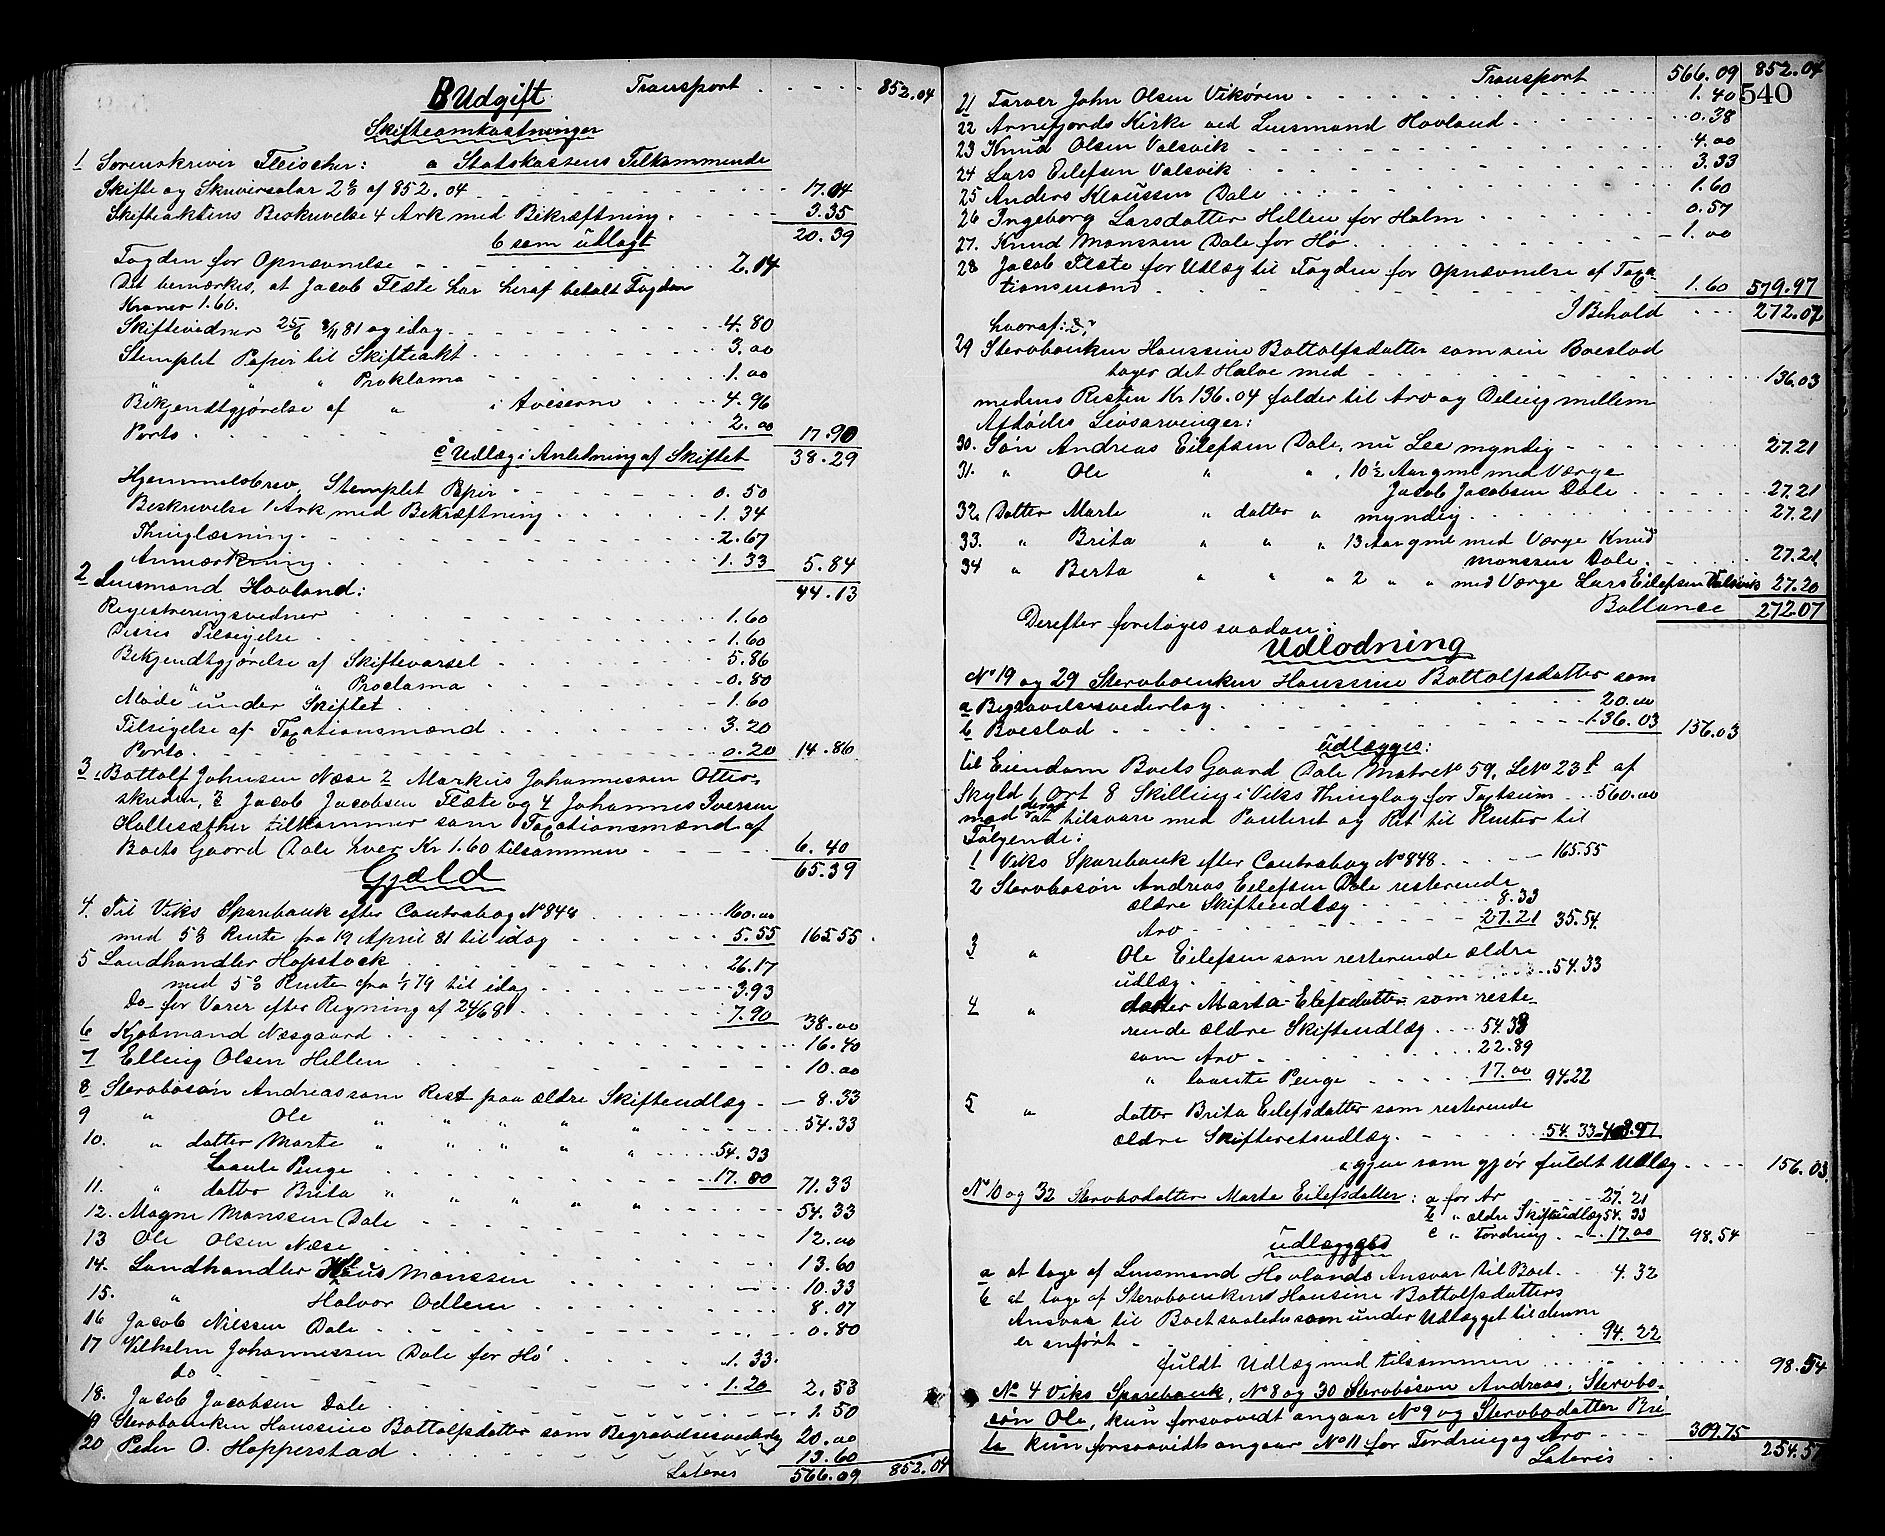 B Udgift Transport - - - - - 852.04
Skifteomkostninger
1 Sorenskriver Fleischer: a Statskassens Tilkommende
Skifte og Skriversalar 2% af 852.04 - - - 17.04
Skifteaktens Beskrivelse 4 Ark med Bekræftning - - - 3.35
20.39
b som udlagt
Fogden for Opnævnelse - - - 2.14
Det bemærkes, at Jacob Flæte har heraf betalt Fogden
Kroner 1.60.
Skiftevidner 25/6 9/11 81 og idag - - - 4.80
Stemplet Papir til Skifteakt - - - 3.00
" " " Proklama - - - 1.00
Bekjendtgjørelse af " i Aviserne - - - 4.96
Porto - - - 2.00 17.90
c Udlæg i Anledning af Skiftet 38.29
Hjemmelsbrev, Stemplet Papir - - - 0.50
Beskrivelse 1 Ark med Bekræftning - - - 1.34
Thinglæsning - - - 2.67
Anmærkning - - - 1.33 5.84
2 Lensmand Hovland: 44.13
Registreringsvidner - - - 1.60
Disses Tilsigelse - - - 1.60
Bekjendtgjørelse af Skiftevarsel - - - 5.86
" " Proclama - - - 0.80
Møde under Skiftet - - - 1.60
Tilsigelse af Taxationsmænd - - - 3.20
Porto - - - 0.20 14.86
3, 1 Bottolf Johnsen Næse 2 Markus Johannessen Otter-
skreden, 3 Jacob Jacobsen Flæte og 4 Johannes Iversen
Hallesæther tilkommer som Taxationsmænd af
Boets Gaard Dale hver Kr 1.60 tilsammen - - - 6.40
65.39
Gjæld
4. Til Viks Sparebank efter Contrabog No 848 - - - 160.00
med 5% Rente fra 19 April 81 til idag - - - 5.55 165.55
5 Landhandler Hopstock - - - 26.17
med 5% Rente fra 1/1 79 til idag - - - 3.93
Do for Varer efter Regning af 24/6 81 - - - 7.90 38.00
6 Kjøbmand Næsgaard - - - 16.40
7 Elling Olsen Hillen - - - 10.00
8 Stervbosøn Andreas som Rest paa ældre Skifteudlæg - - 8.33
9 " Ole " " " " " - - - 54.33
10. " datter Marte " " " " " - - - 54.33
Laante Penge - - - 17.00 71.33
11. " datter Brita " " " " " - - - 54.33
12. Magne Monssen Dale - - - 12.00
13 Ole Olsen Næse - - - 13.60
14. Landhandler Hans Monssen - - - 10.33
15. " Halvor Odlem - - - 8.07
16 Jacob Nilssen Dale - - - 0.80
17 Vilhelm Johannessen Dale for Hø - - - 1.33.
do - - - 1.20 2.53
18. Jacob Jacobsen Dale - - - 1.50
19 Stervboenken Hanssine Bottolfsdatter som Begravelsesvederlag 20.00
20 Peder O. Hopperstad - - - 13.60
Lateris 566.09 852.04
Transport 566.09 852.04
540
21 Farver John Olsen Vikøren - - - 1.40
22 Arnefjords Kirke ved Lensmand Hovland - - - 0.38
23 Knud Olsen Valsvik - - - 4.00
24 Lars Eilefsen Valsvik - - - 3.33
25 Anders Klaussen Dale - - - 1.60
26 Ingeborg Larsdatter Hillen for Halm - - - 0.57
27. Knud Monssen Dale for Hø - - - 1.00
28 Jacob Flæte for Udlæg til Fogden for Opnævnelse af Taxa-
tionsmænd - - - 1.60 579.97
I Behold - - - 272.07
hvoraf:
29 Stervboenken Hanssine Bottolfsdatter som sin Boeslod
tager det Halve med - - - 136.03
medens Resten Kr 136.04 falder til Arv og Deling mellem
Afdødes Livsarvinger:
30. Søn Andreas Eilefsen Dale, nu Lee myndig - - - 27.21
31. " Ole " " , 10½ Aar gml med Værge
Jacob Jacobsen Dale - - - 27.21
32. Datter Marte " datter " myndig - - - 27.21
33. " Brita " " " 13 Aar gml med Værge Knud
Monssen Dale - - - 27.21
34 " Berta " " " 2 " " med Værge Lars Eilefsen Valsvik 27.20
Ballance 272.07
Derefter foretoges saadan:
Udlodning
No 19 og 29 Stervboenken Hanssine Bottolfsdatter som
a Begravelsesvederlag - - - 20.00
b Boeslod - - - 136.03 156.03
udlægges:
til Eiendom Boets Gaard Dale Matr No 59, L No 23 b af
Skyld 1 Ort 8 Skilling i Viks Thinglag for Taxtsum - - 560.00
mod deraf at tilsvare med Panteret og Ret til Renter til
Følgende:
1 Viks Sparebank efter Contrabog No 848 - - - 165.55
2 Stervbosøn Andreas Eilefsen Dale resterende
ældre Skifteudlæg - - - 8.33
Arv - - - 27.21 35.54
3 " Ole Eilefsen som resterende ældre
udlæg - - - 54.33
4 " datter Marta Eilefsdatter som reste-
rende ældre Skifteudlæg - - - 54.33
som Arv - - - 22.89
" laante Penge - - - 17.00 94.22
5 " datter Brita Eilefsdatter som resterende
ældre Skifteretsudlæg - - - 54.33 403.97
igjen som gjør fuldt Udlæg - - - 156.03
No 10 og 32 Stervbodatter Marta Eilefsdatter: a for Arv - - - 27.21
b " ældre Skifteudlæg 54.33
c " Fordring - - 17.00 98.54
udlægges
a at tage af Lensmand Hovlands Ansvar til Boet - - 4.32
b at tage af Stervboenken Hansine Bottolfsdatters
Ansvar til Boet saaledes som under Udlægget til denne
er anført - - - 94.22
fuldt Udlæg med tilsammen - - - 98.54
No 4 Viks Sparebank, No 8 og 30 Stervbosøn Andreas, Stervbo-
søn Ole, kun forsaavidt angaar No 9 og Stervbodatter Bri-
ta kun forsaavidt angaar No 11 for Fordring og Arv - - - 309.75
Lateris - - - 254.57